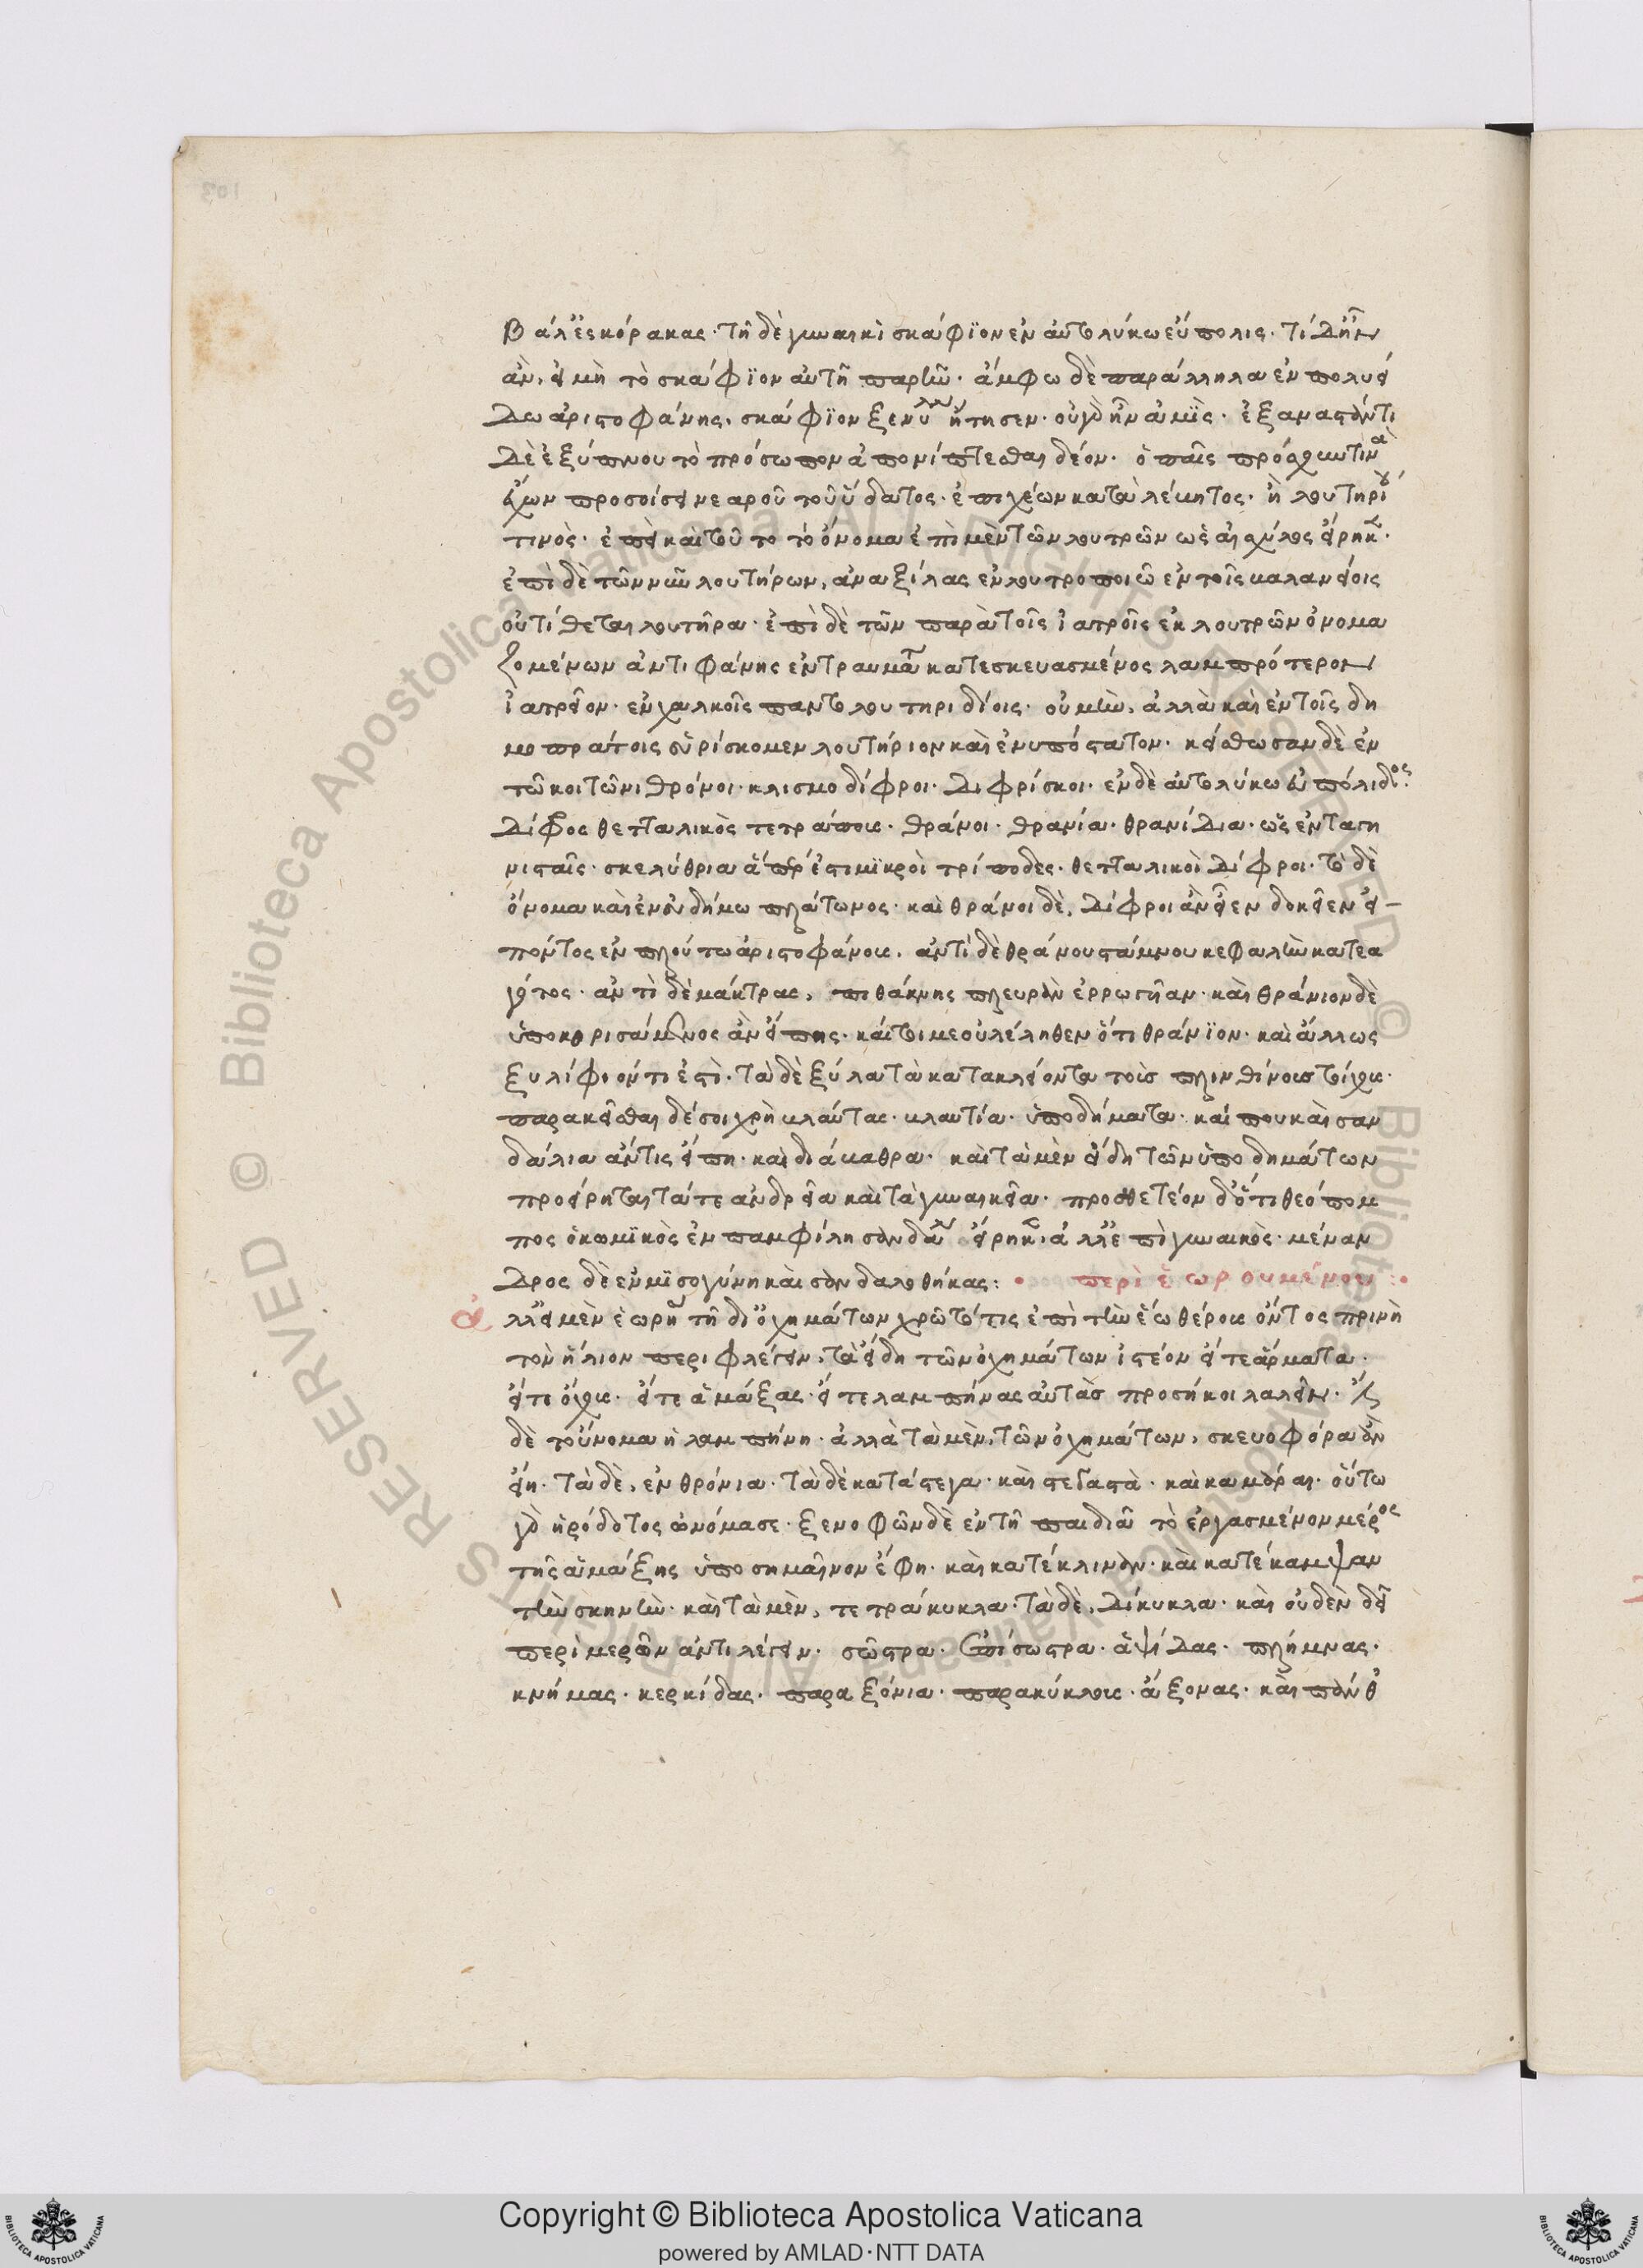 βάλ' ἐς κόρακας· τῆ δὲ γυναικὶ σκάφϊον ἐν αὐτολύκω εὔπολις· τί δῆτ'
ἂν, εἰ μὴ τὸ σκάφϊον αὐτῆ παρῆν· ἄμφω δὲ παράλληλα ἐν πολυεί
δω ἀριστοφάνης, σκάφϊον ξενυλλ' ἤτησεν· οὐ γὰρ ἦν ἀμὶς· ἐξαναστάντι
δὲ ἐξ ὕπνου τὸ πρόσωπον ἀπονίπτεσθαι δέον· ὁ παῖς πρόχουν τινὰ
ἔχων προσοίσει νεαροῦ τοῦ ὕδατος· ἐπιχέων κατὰ λέκητος· ἢ λουτηρίου
τινὸς· ἐπεὶ καὶ τοῦτο τὸ ὄνομα ἐπὶ μὲν τῶν λουτρῶν ὡς αἰσχύλος εἴρηκε·
ἐπὶ δὲ τῶν νῦν λουτήρων, ἀναξίλας ἐν λυτροποιῶ ἐν τοῖς βαλανείοις
οὐ τίθεται λουτῆρα· ἐπὶ δὲ τῶν παρὰ τοῖς ἰατροῖς ἐκ λουτρῶν ὀνομα
ζομένων ἀντιφάνης ἐν τραυματία κατεσκευασμένος λαμπρότερον
ἰατρεῖον· ἐν χαλκοῖς πάντα λουτηριδίοις· οὐ μὴν, ἀλλὰ καὶ ἐν τοῖς δη
μιοπράτοις εὑρίσκομεν λουτήριον καὶ ἐνυπόστατον· κείσθωσαν δὲ ἐν
τῶ κοιτῶνι θρόνοι· κλισμο δίφροι· διφρίσκοι· ἐν δὲ αὐτολύκω εὐπόλιδος·
δίφρος θετταλικὸς τετράπους· θράνοι· θρανία· θρανίδια· ὡς ἐν ταγη
νισταῖς· σκελύθρια ἅπερ ἐστι μϊκροὶ τρίποδες· θετταλικοὶ δίφροι· τὸ δὲ
ὄνομα καὶ ἐν δήμω πλάτωνος· καὶ θράνοι δὲ, δίφροι ἂν εἶεν δοκεῖ ἐν εἰ-
πόντος ἐν πλούτω ἀριστοφάνους, ἀντὶ δὲ θράνου στάμνου κεφαλὴν κατεα
γότος· ἀντὶ δὲ μάκτρας, πιθάκνης πλευρὰν ἐρρωγεῖαν· καὶ θράνιον δὲ
ὑποκορισάμενος ἂν εἴποις· καίτοι με οὐ λέληθεν ὅτι θράνϊον· καὶ ἄλλως
ξυλίφιόν τι ἐστὶ· τὰ δὲ ξύλα τὰ κατακλείοντα τοῖς πλινθίνοις τοίχοις·
παρακεῖσθαι δέ σοι χρὴ βλαύτας· βλαυτία· ὑποδήματα· καί που καὶ σαν
δάλια ἄν τις εἴποι· καὶ διάβαθρα· καὶ τὰ μὲν εἴδη τῶν ὑποδημάτων
προείρηται τά τε ἀνδρεῖα καὶ τὰ γυναικεῖα· προσθετέον δ' ὅτι θεόπομ
πος ὁ κωμϊκὸς ἐν παμφίλη σάνδαλα εἴρηκε ἀλλ' ἐπὶ γυναικὸς· μέναν
δρος δὲ ἐν μϊσογύνη καὶ σανδαλοθήκας: • περὶ ἐωρουμένου :•
ἀλλ' εἰ μὲν ἐωρη τῆ δι' ὀχημάτων χρῶτό τις ἐπὶ τὴν ἕω θέρους ὄντος πρινὴ
τὸν ἥλιον περιφλέγειν, τὰ εἴδη τῶν ὀχημάτων ἰστέον εἴτε ἅρματα·
εἴτε ὄχους· εἴτε ἁμάξας· εἴτε λαμπήνας αὐτὰς προσήκοι λαλεῖν· ἔστι
δὲ τοὔνομα ἡ λαμπήνη· ἀλλὰ τὰ μὲν, τῶν ὀχημάτων, σκευοφόρα ἂν
εἴη· τὰ δὲ, ἐνθρόνια· τὰ δὲ κατάστεγα· καὶ στεγαστὰ· καὶ καμάραι· οὕτω
γὰρ ἡρόδοτος ὠνόμασε· ξενοφῶν δὲ ἐν τῆ παιδία τὸ ἐργασμένον μέρος
τῆς ἁμάξης ὑποσημαῖνον ἔφη· καὶ κατέκλιναν· καὶ κατέκαμψαν
τὴν σκηνὴν· καὶ τὰ μὲν, τετράκυκλα· τὰ δὲ, δίκυκλα· καὶ οὐδὲν δεῖ
περὶ μερῶν ἀντιλέγειν· σῶτρα· ἐπίσωτρα· ἁψίδας· πλήμνας·
κνήμας· κερκίδας· παραξόνια· παρακύκλους· ἄξονας· καὶ πάνθ'